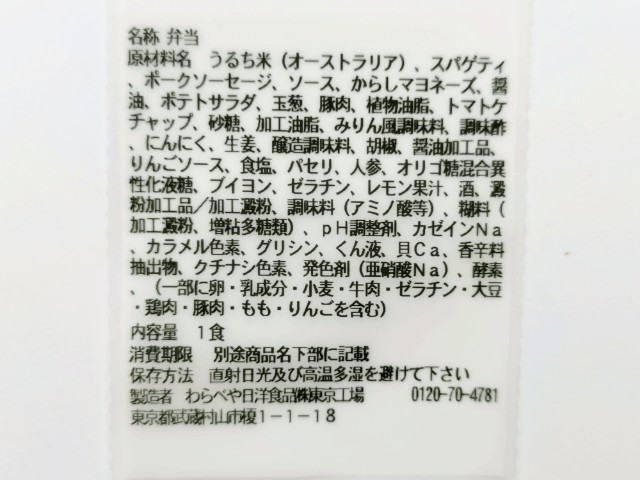 名称 弁当
原材料名 うるち米（オーストラリア）、スパゲティ
、ポークソーセージ、ソース、からしマヨネーズ、醤
油、ポテトサラダ、玉葱、豚肉、植物油脂、トマトケ
チャップ、砂糖、加工油脂、みりん風調味料、調味酢
、にんにく、生姜、醸造調味料、胡椒、醤油加工品、
りんごソース、食塩、パセリ、人参、オリゴ糖混合異
性化液糖、ブイヨン、ゼラチン、レモン果汁、酒、澱
粉加工品／加工澱粉、調味料（アミノ酸等）、糊料（
加工澱粉、増粘多糖類）、ｐＨ調整剤、カゼインＮａ
、カラメル色素、グリシン、くん液、貝Ｃａ、香辛料
抽出物、クチナシ色素、発色剤（亜硝酸Ｎａ）、酵素
、（一部に卵・乳成分・小麦・牛肉・ゼラチン・大豆
・鶏肉・豚肉・もも・りんごを含む）
内容量 １食
消費期限 別途商品名下部に記載
保存方法 直射日光及び高温多湿を避けて下さい
製造者 わらべや日洋食品㈱東京工場 0120-70-4781
東京都武蔵村山市榎１－１－１８